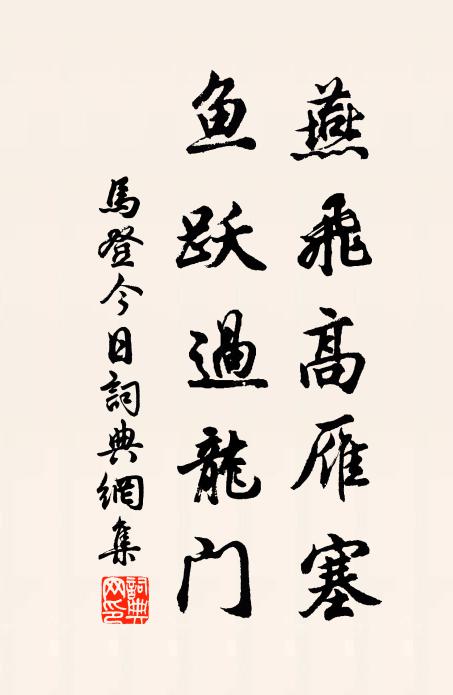 燕飛高雁塞
鱼跃過龍門
馬登今日詞典網集
詞典网印